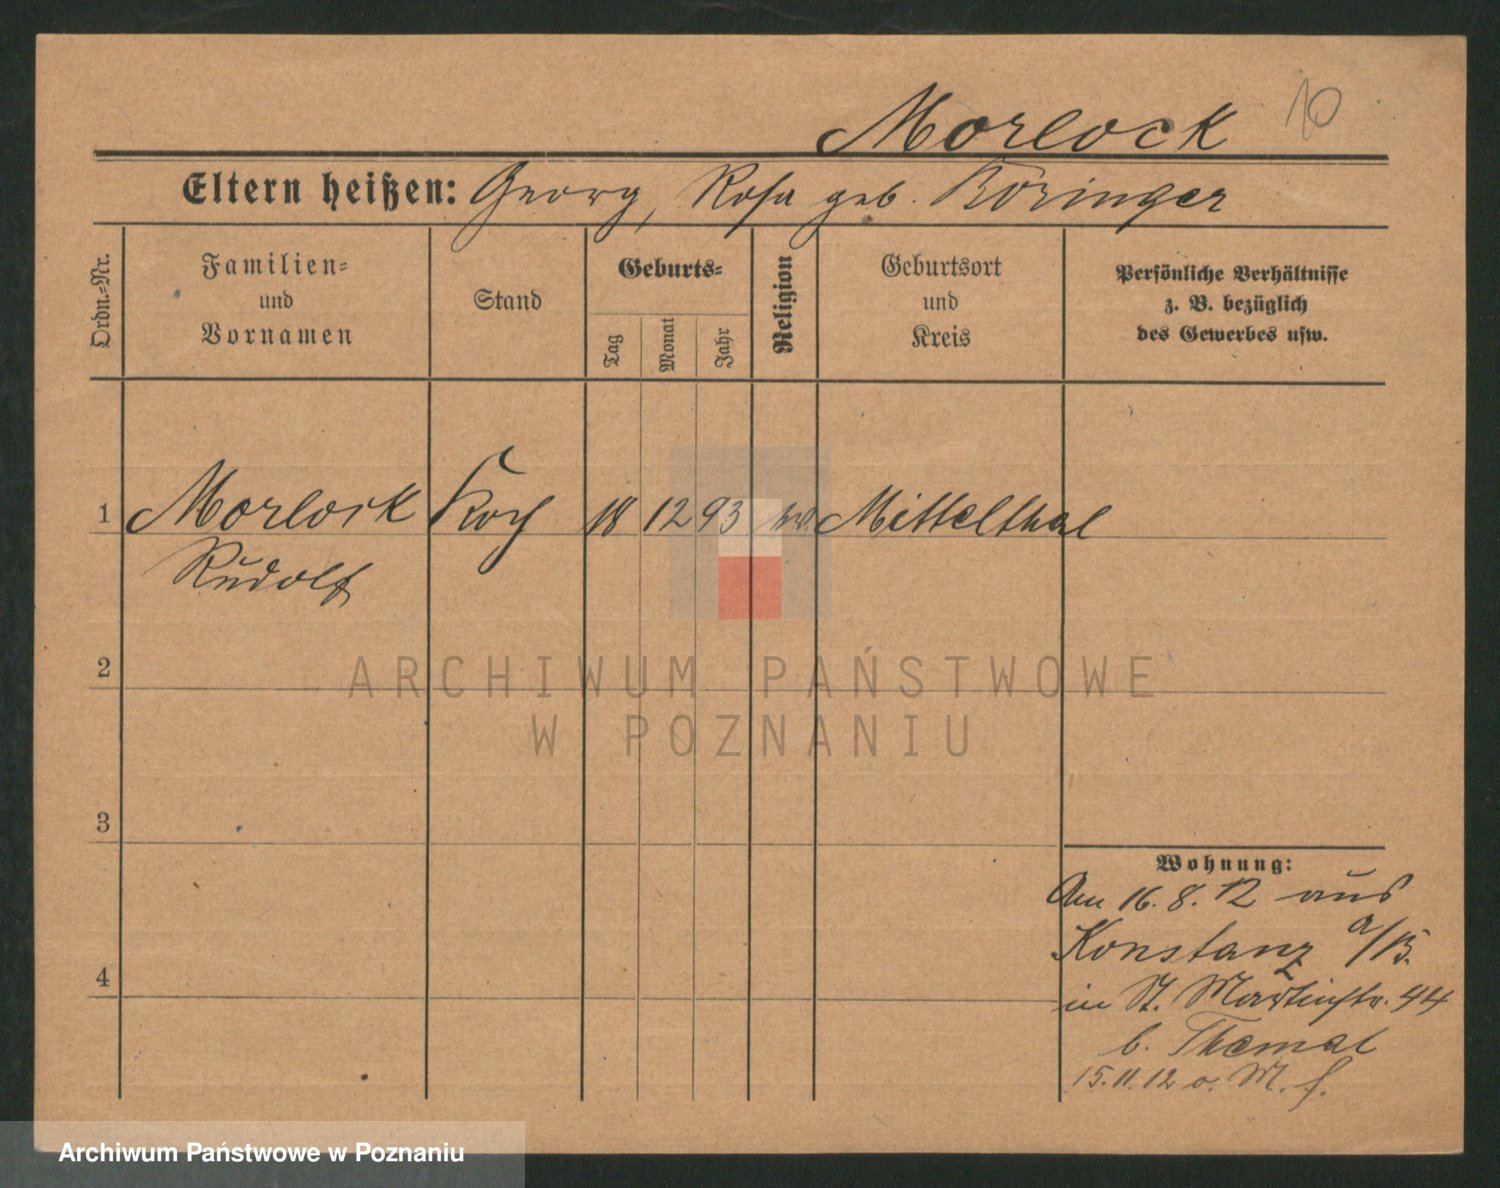 Morlock 10
Eltern heißen: Georg, Rosa geb. Böringer
Ordn.-Nr.
Familien-
und
Vornamen
Stand
Geburts-
Tag
Monat
Jahr
Religion
Geburtsort
und
Kreis
Persönliche Verhältnisse
z. B. bezüglich
des Gewerbes usw.
1 Morlock Koch 18 12 93 Mittelthal
Rudolf
2
3
4
Wohnung:
Am 16.8.12 aus
Konstanz a/B.
in St. Martinstr. 44
b. Themal
15.11.12 o. M. f.
ARCHIWUM PAŃSTWOWE
W POZNANIU
Archiwum Państwowe w Poznaniu